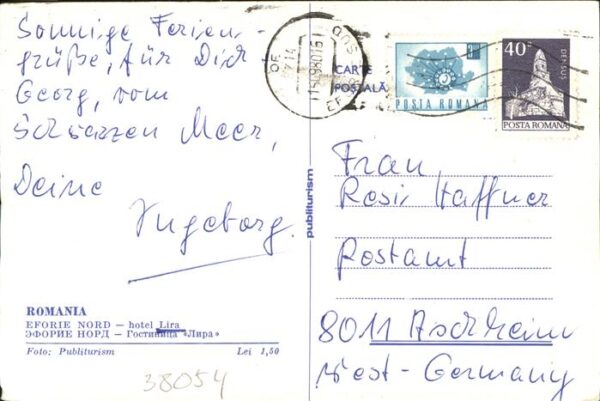 Sonnige Ferien-
grüße, für Dich
Georg, vom
Schwarzen Meer,
Deine
Ingeborg.
ROMANIA
EFORIE NORD — hotel Lira
ЭФОРИЕ НОРД — Гостиница «Лира»
Foto: Publiturism Lei 1,50
38054
publiturism
CARTE
POSTALĂ
POSTA ROMANA
40
DENSUS
POSTA ROMANA
Frau,
Resi Haffner
Postamt
8011 Aschheim
West-Germany